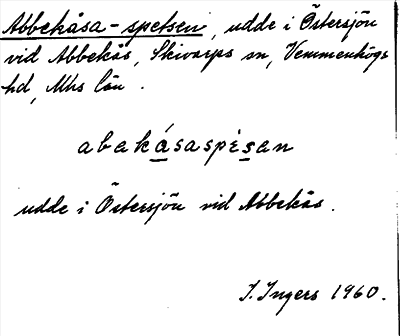 Abbekåsa-spetsen, udde i Östersjön
vid Abbekås, Skivarps sn, Vemmenhögs
hd, Mhs län.
abekåsaspèsan
udde i Östersjön vid Abbekås.
I. Ingers 1960.